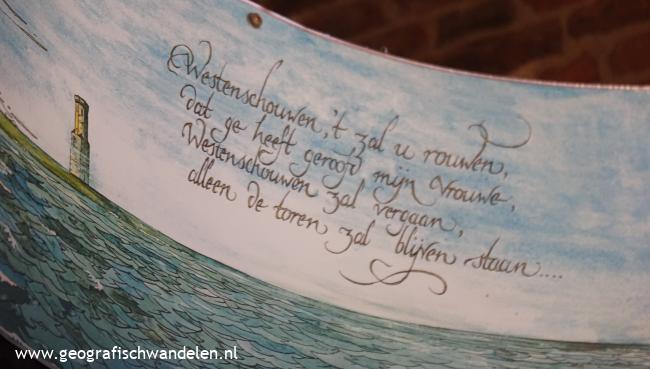 Westenschouwen, 't zal u rouwen,
dat ge heeft geroofd mijn vrouwe,
Westenschouwen zal vergaan,
alleen de toren zal blijven staan....
www.geografischwandelen.nl